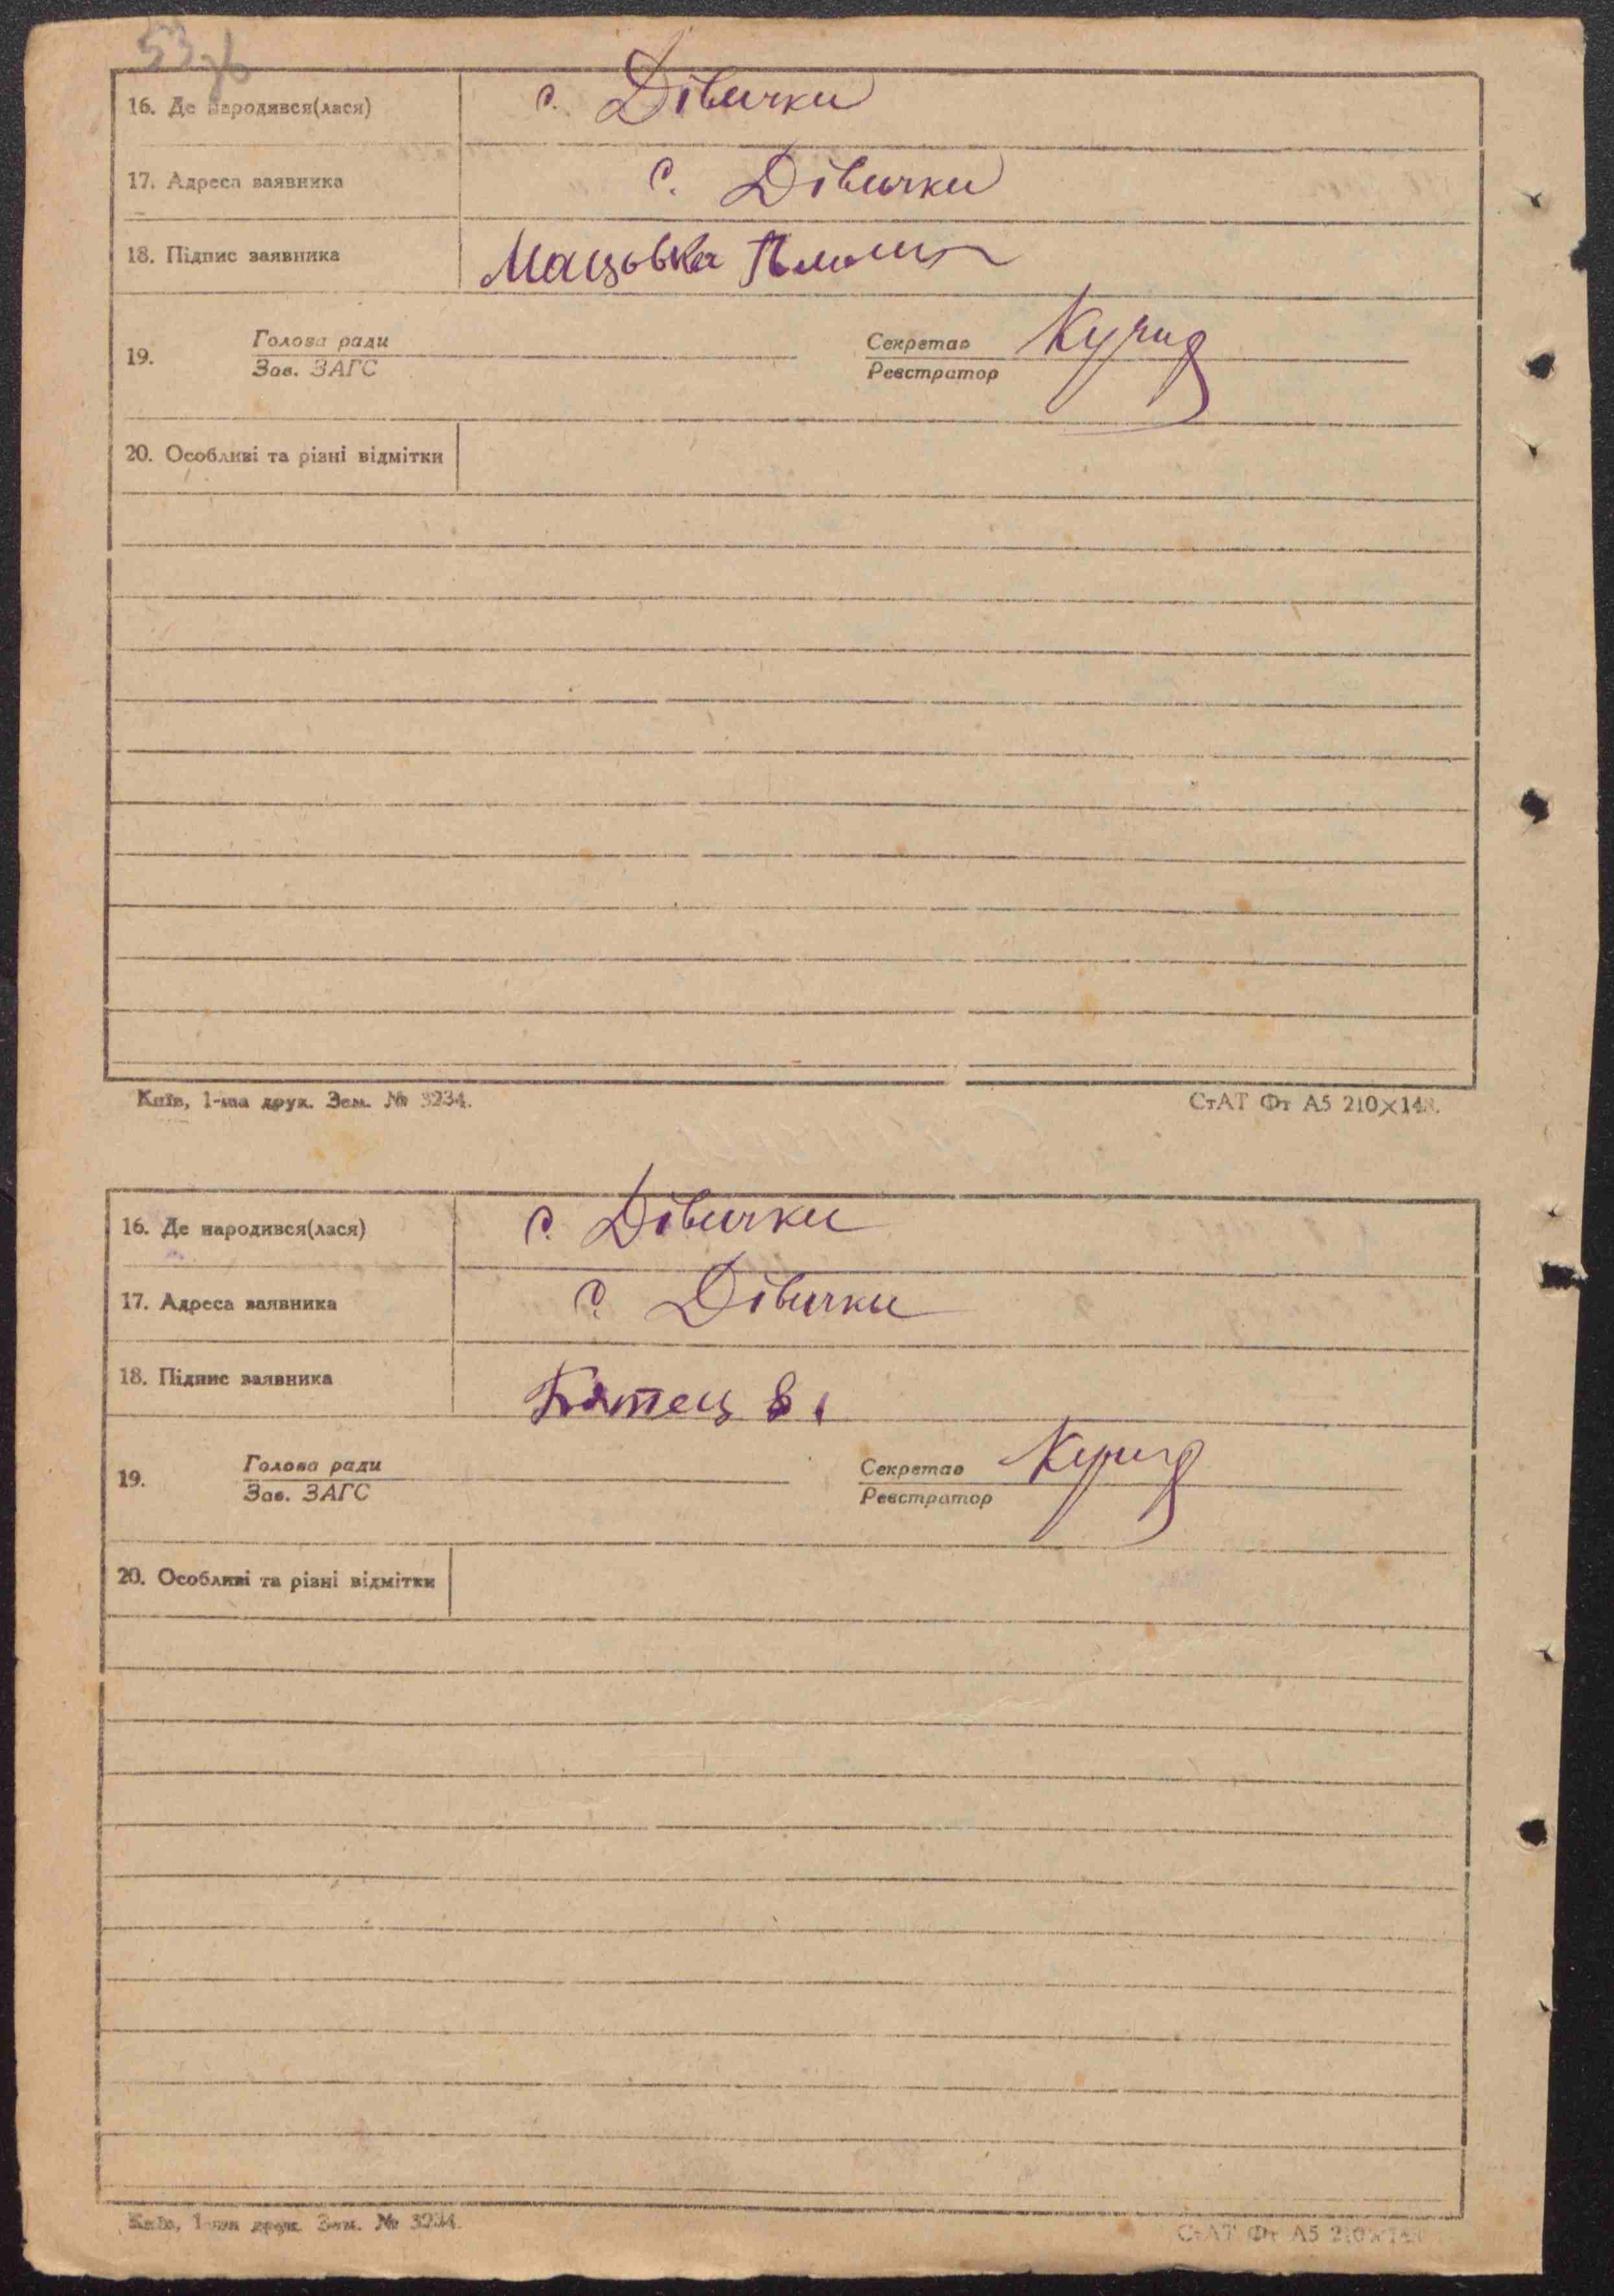 16. Де народився(лася) с. Дівички
17. Адреса заявника с. Дівички
18. Підпис заявника Мацовка
19. Голова ради Секретар
Зав. ЗАГС Реєстратор
20. Особливі та різні відмітки
Київ, 1-ша друк. Зам. № 3234.
СтАТ Фт А5 210×148.
16. Де народився(лася) с. Дівички
17. Адреса заявника с. Дівички
18. Підпис заявника
19. Голова ради Секретар
Зав. ЗАГС Реєстратор
20. Особливі та різні відмітки
Київ, 1-ша друк. Зам. № 3234.
СтАТ Фт А5 210×148